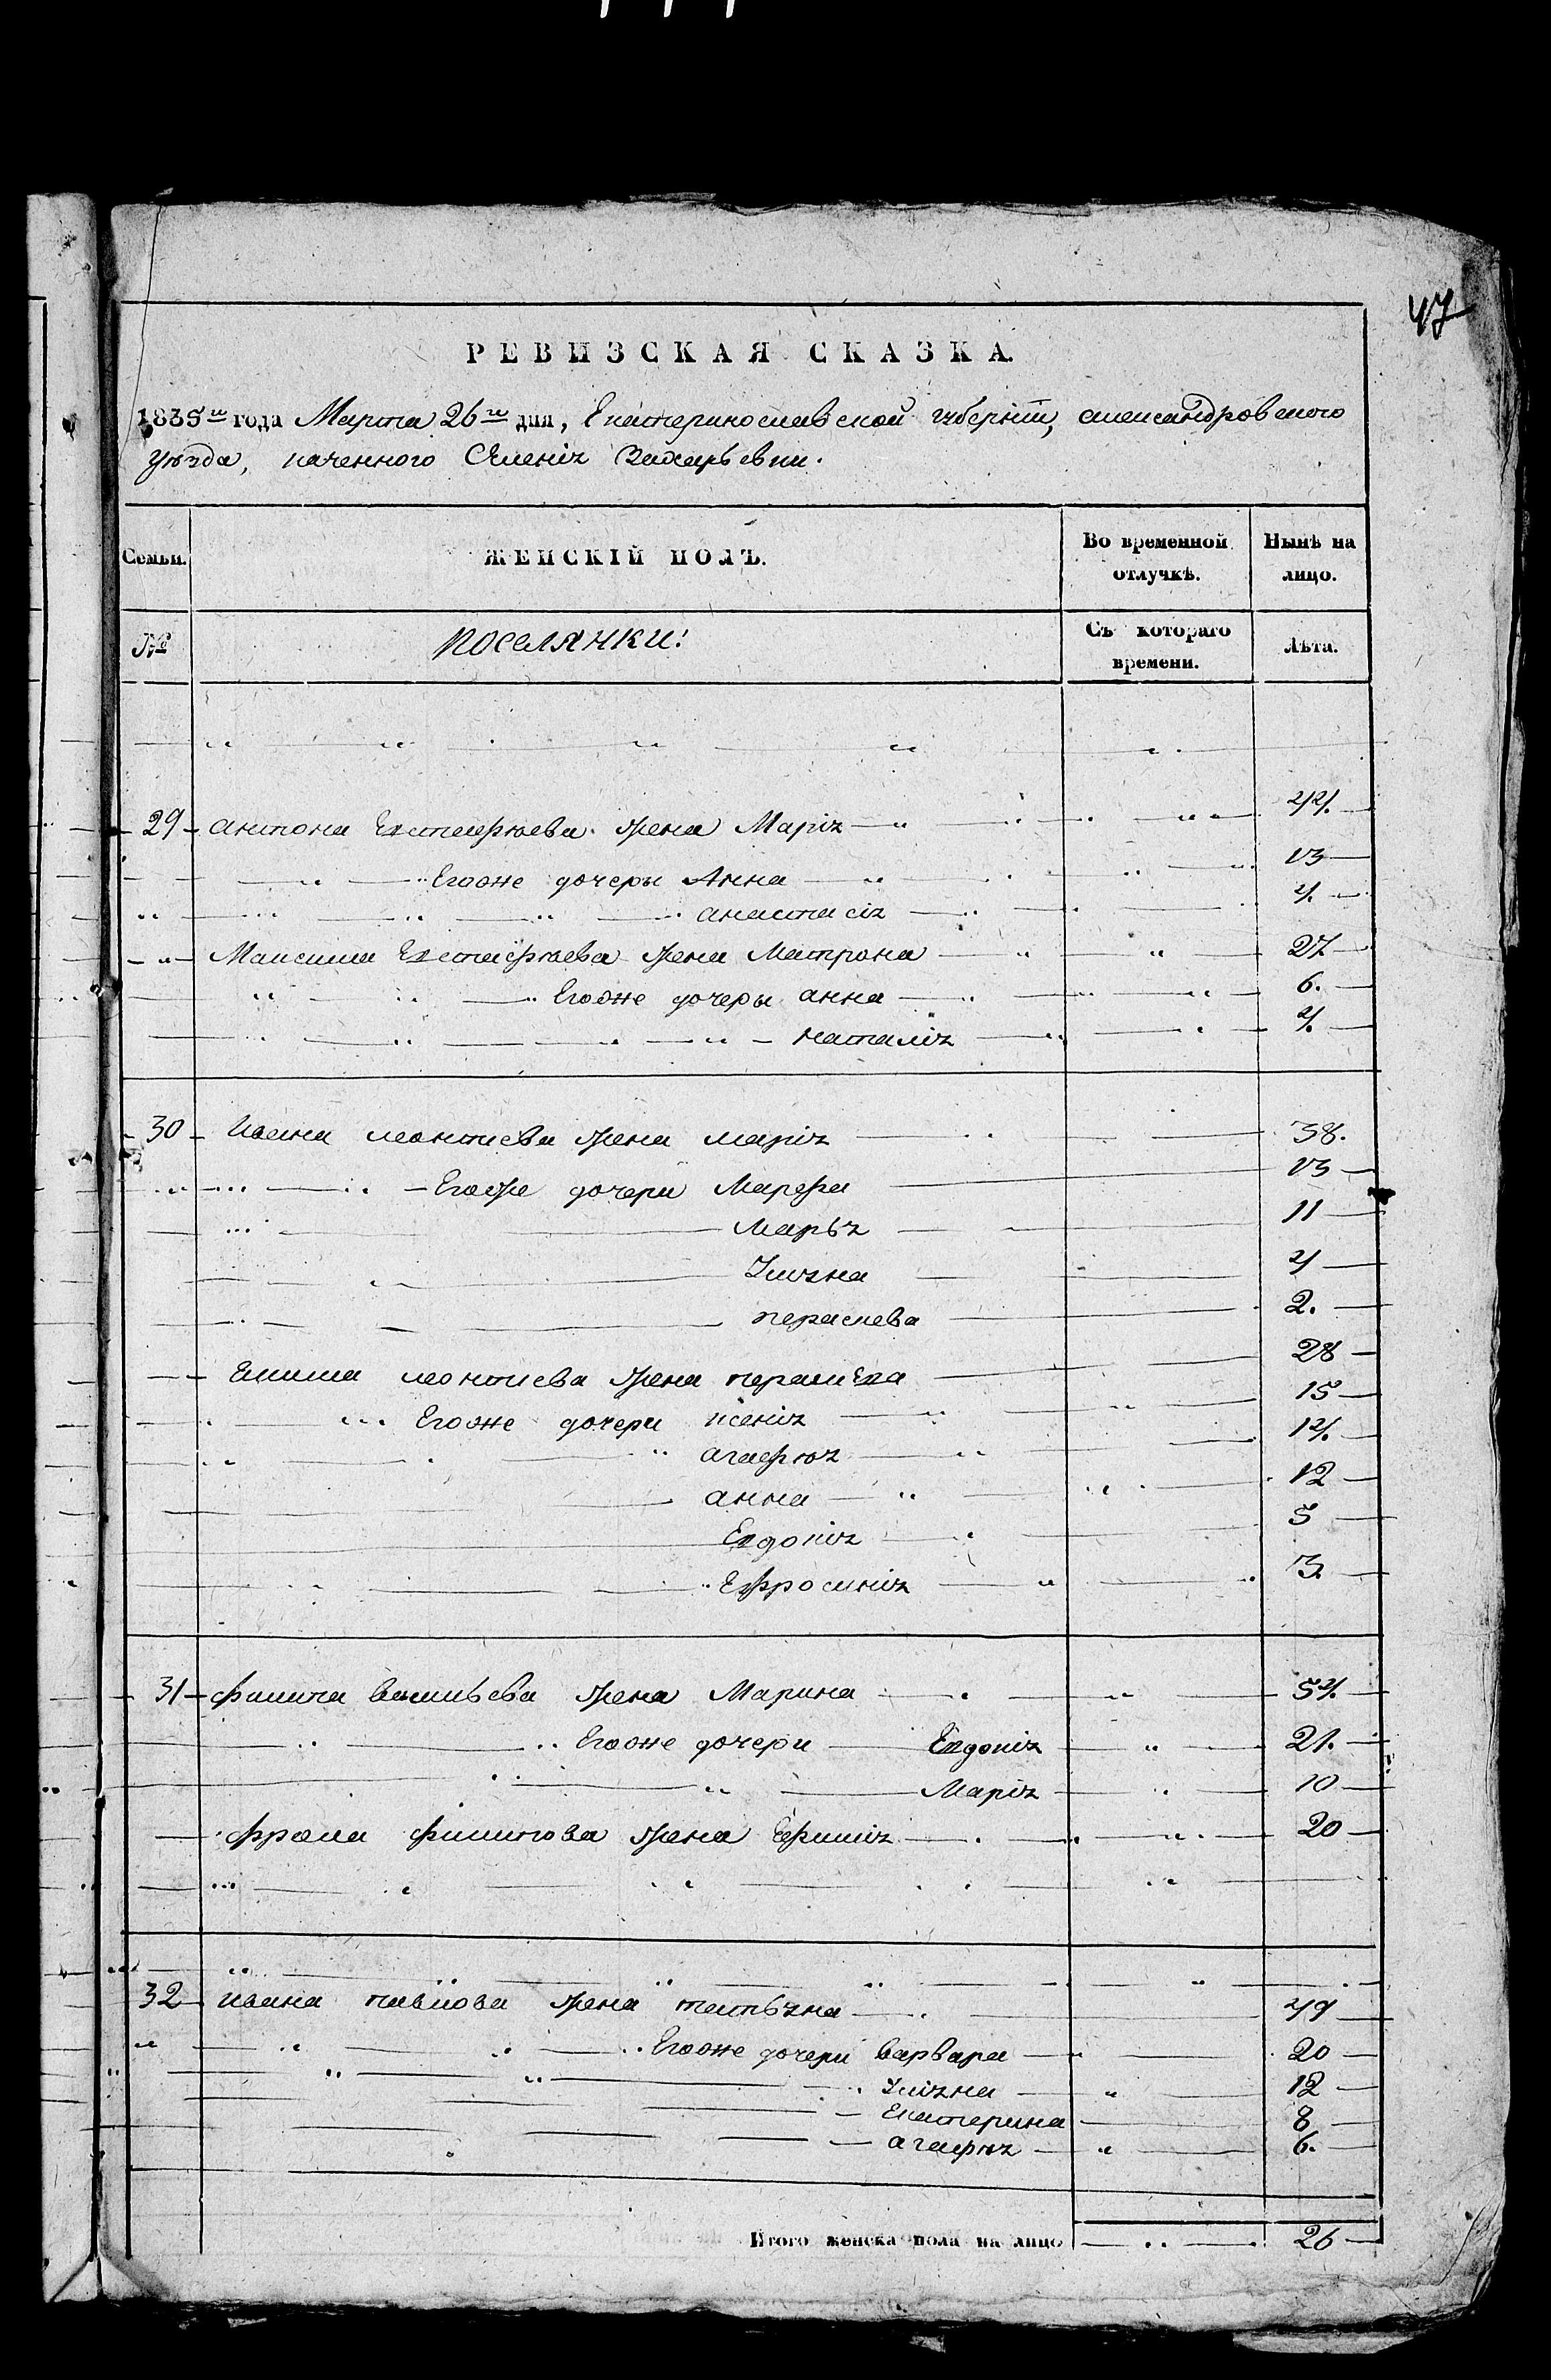 47
РЕВИЗСКАЯ СКАЗКА.
1835го года Марта 26го дня, Екатеринославской губерніи, александровского
уезда, казенного Селенія Захарьевки.
Семьи. ЖЕНСКІЙ ПОЛЪ. Во временной отлучкѣ. Нынѣ на лицо.
№ Поселянки: Съ котораго времени. Лѣта.
29 антона Евстафіева жена Марія 44.
Егоже дочеры Анна 13
анастасія 4.
Максима Евстафіева жена Матрона 27
Егоже дочеры анна 6.
наталія 4.
30 Ивана леонтиева жена марія 38.
Егоже дочери Марфа 13
Марья 11
Улияна 4
параскева 2.
Екима леонтиева жена параскева 28
Егоже дочери ксенія 15
агафия 14.
анна 12
Евдокія 5
Ефросинія 3.
31 филипа васильева жена Марина 54.
Егоже дочери Евдокія 21.
Марія 10
фрола филипова жена Ефимія 20
32 ивана павлова жена татьяна 49
Егоже дочери варвара 20
Улияна 12
Екатерина 8
агафия 6.
Итого женска пола на лицо 26